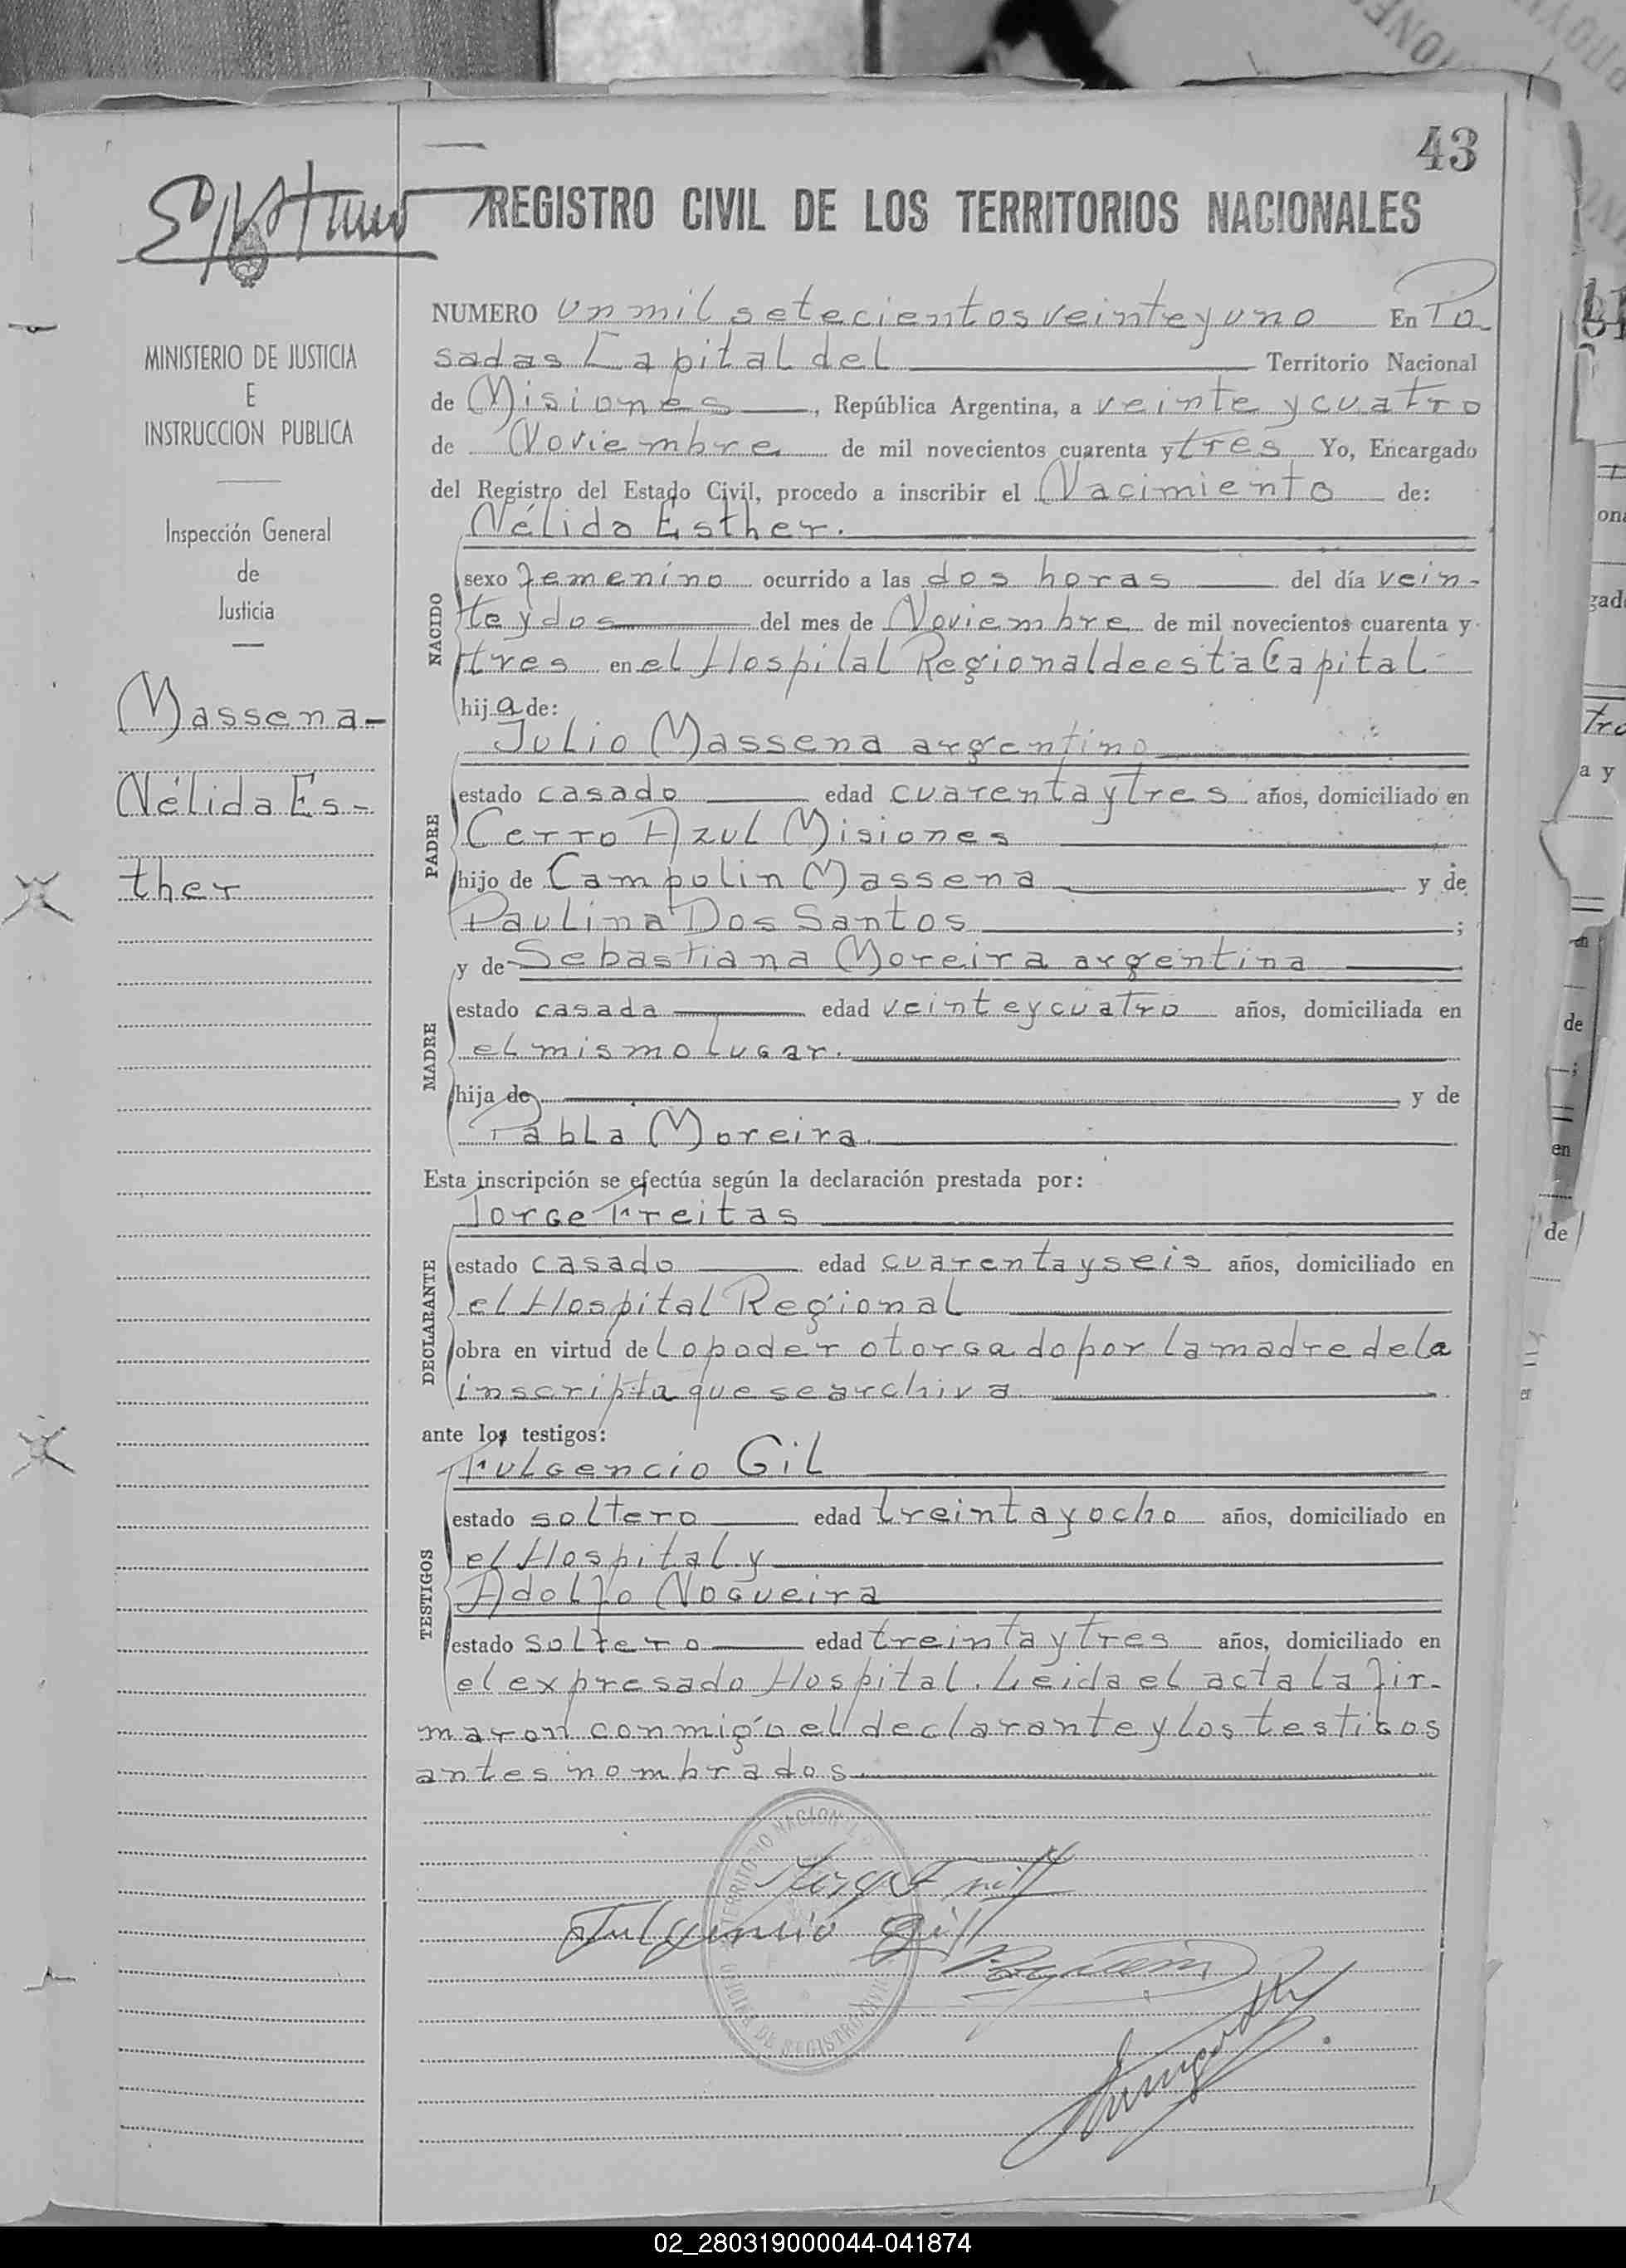 43
REGISTRO CIVIL DE LOS TERRITORIOS NACIONALES
MINISTERIO DE JUSTICIA
E
INSTRUCCION PUBLICA
Inspección General
de
Justicia
Massena-
Nélida Es-
ther
NUMERO un mil setecientos veinte y uno En Po-
sadas Capital del Territorio Nacional
de Misiones, República Argentina, a veinte y cuatro
de Noviembre de mil novecientos cuarenta y tres Yo, Encargado
del Registro del Estado Civil, procedo a inscribir el Nacimiento de:
Nélida Esther.
NACIDO
sexo femenino ocurrido a las dos horas del día vein-
te y dos del mes de Noviembre de mil novecientos cuarenta y
tres en el Hospital Regional de esta Capital
hija de:
Julio Massena argentino
PADRE
estado casado edad cuarenta y tres años, domiciliado en
Cerro Azul Misiones
hijo de Campolin Massena y de
Paulina Dos Santos ;
y de Sebastiana Moreira argentina
MADRE
estado casada edad veinte y cuatro años, domiciliada en
el mismo lugar.
hija de y de
Pabla Moreira
Esta inscripción se efectúa según la declaración prestada por:
Jorge Freitas
DECLARANTE
estado casado edad cuarenta y seis años, domiciliado en
el Hospital Regional
obra en virtud de lo poder otorgado por la madre de la
inscripta que se archiva
ante los testigos:
Fulgencio Gil
TESTIGOS
estado soltero edad treinta y ocho años, domiciliado en
el Hospital y
Adolfo Nogueira
estado soltero edad treinta y tres años, domiciliado en
el expresado Hospital. Leida el acta la fir-
maron conmigo el declarante y los testigos
antes nombrados
Fulgencio Gil
02_280319000044-041874